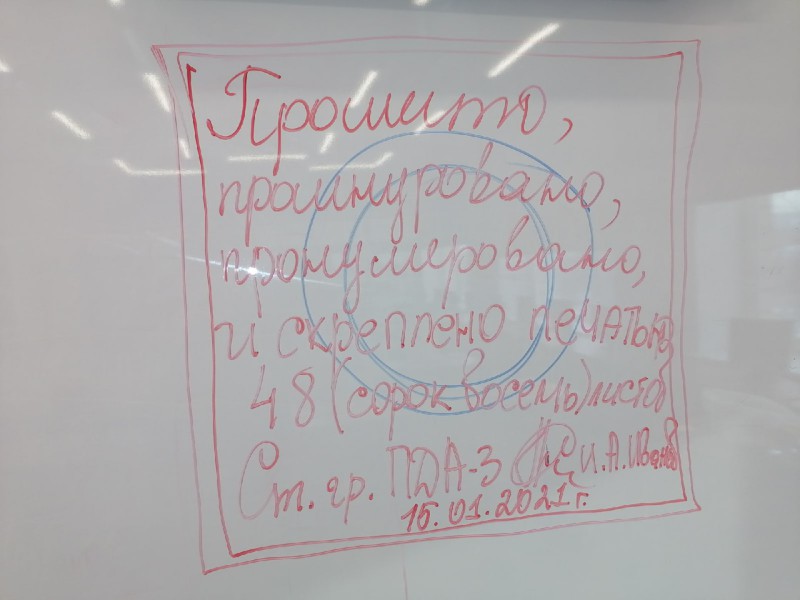 Прошито,
прошнуровано,
пронумеровано,
и скреплено печатью
48 (сорок восемь) листов
Ст. гр. ПДА-3 И.А. Иванов
15.01.2021 г.